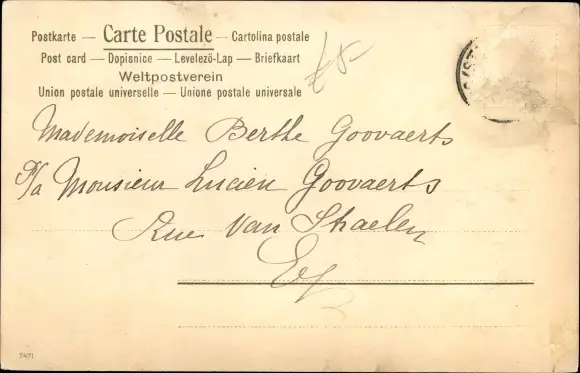 Postkarte — Carte Postale — Cartolina postale
Post card — Dopisnice — Levelező-Lap — Briefkaart
Weltpostverein
Union postale universelle — Unione postale universale
Mademoiselle Berthe Goovaerts
P/a Monsieur Lucien Goovaerts
Rue Van Shaelen
7471